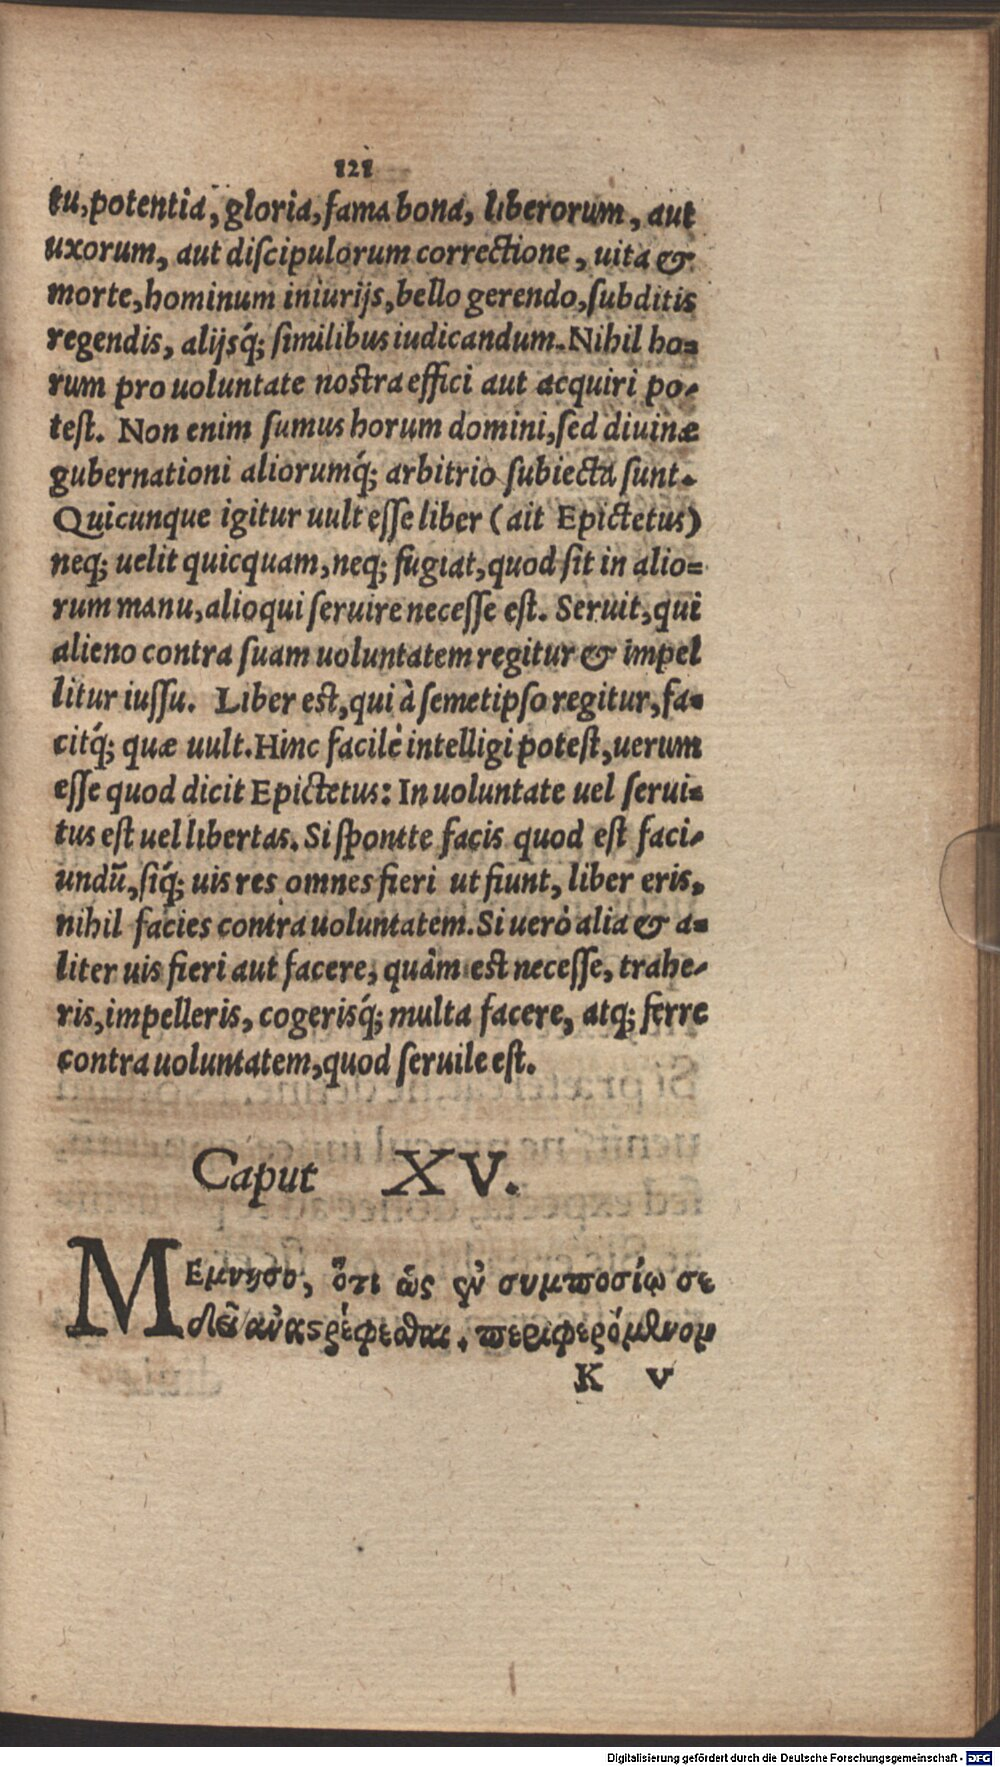 121
tu, potentia, gloria, fama bona, liberorum, aut
uxorum, aut discipulorum correctione, uita &
morte, hominum iniurijs, bello gerendo, subditis
regendis, alijsq́; similibus iudicandum. Nihil ho=
rum pro uoluntate nostra effici aut acquiri po-
test. Non enim sumus horum domini, sed diuinæ
gubernationi aliorumq́; arbitrio subiecta sunt.
Quicunque igitur uult esse liber (ait Epictetus)
neq; uelit quicquam, neq; fugiat, quod sit in alio=
rum manu, alioqui seruire necesse est. Seruit, qui
alieno contra suam uoluntatem regitur & impel
litur iussu. Liber est, qui à semetipso regitur, fa=
citq́; quæ uult. Hinc facilè intelligi potest, uerum
esse quod dicit Epictetus: In uoluntate uel serui=
tus est uel libertas. Si spontte facis quod est faci-
undũ, siq́; uis res omnes fieri ut fiunt, liber eris,
nihil facies contra uoluntatem. Si uerò alia & a=
liter uis fieri aut facere, quàm est necesse, trahe-
ris, impelleris, cogerisq́; multa facere, atq; ferre
contra uoluntatem, quod seruile est.
Caput XV.
ΜΕμνησο, ὅτι ὡς ἐν συμποσίῳ σε
δεῖ ἀναστρέφεσθαι. περιφερόμενον
K v
Digitalisierung gefördert durch die Deutsche Forschungsgemeinschaft - DFG